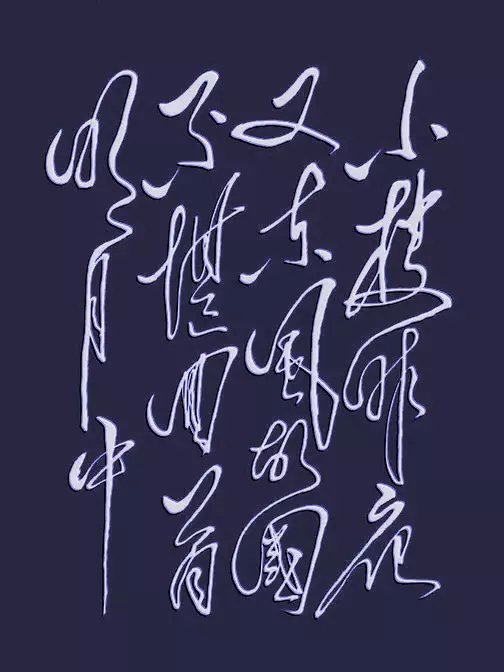 小楼昨夜
又东风故國
不堪回首
明月中